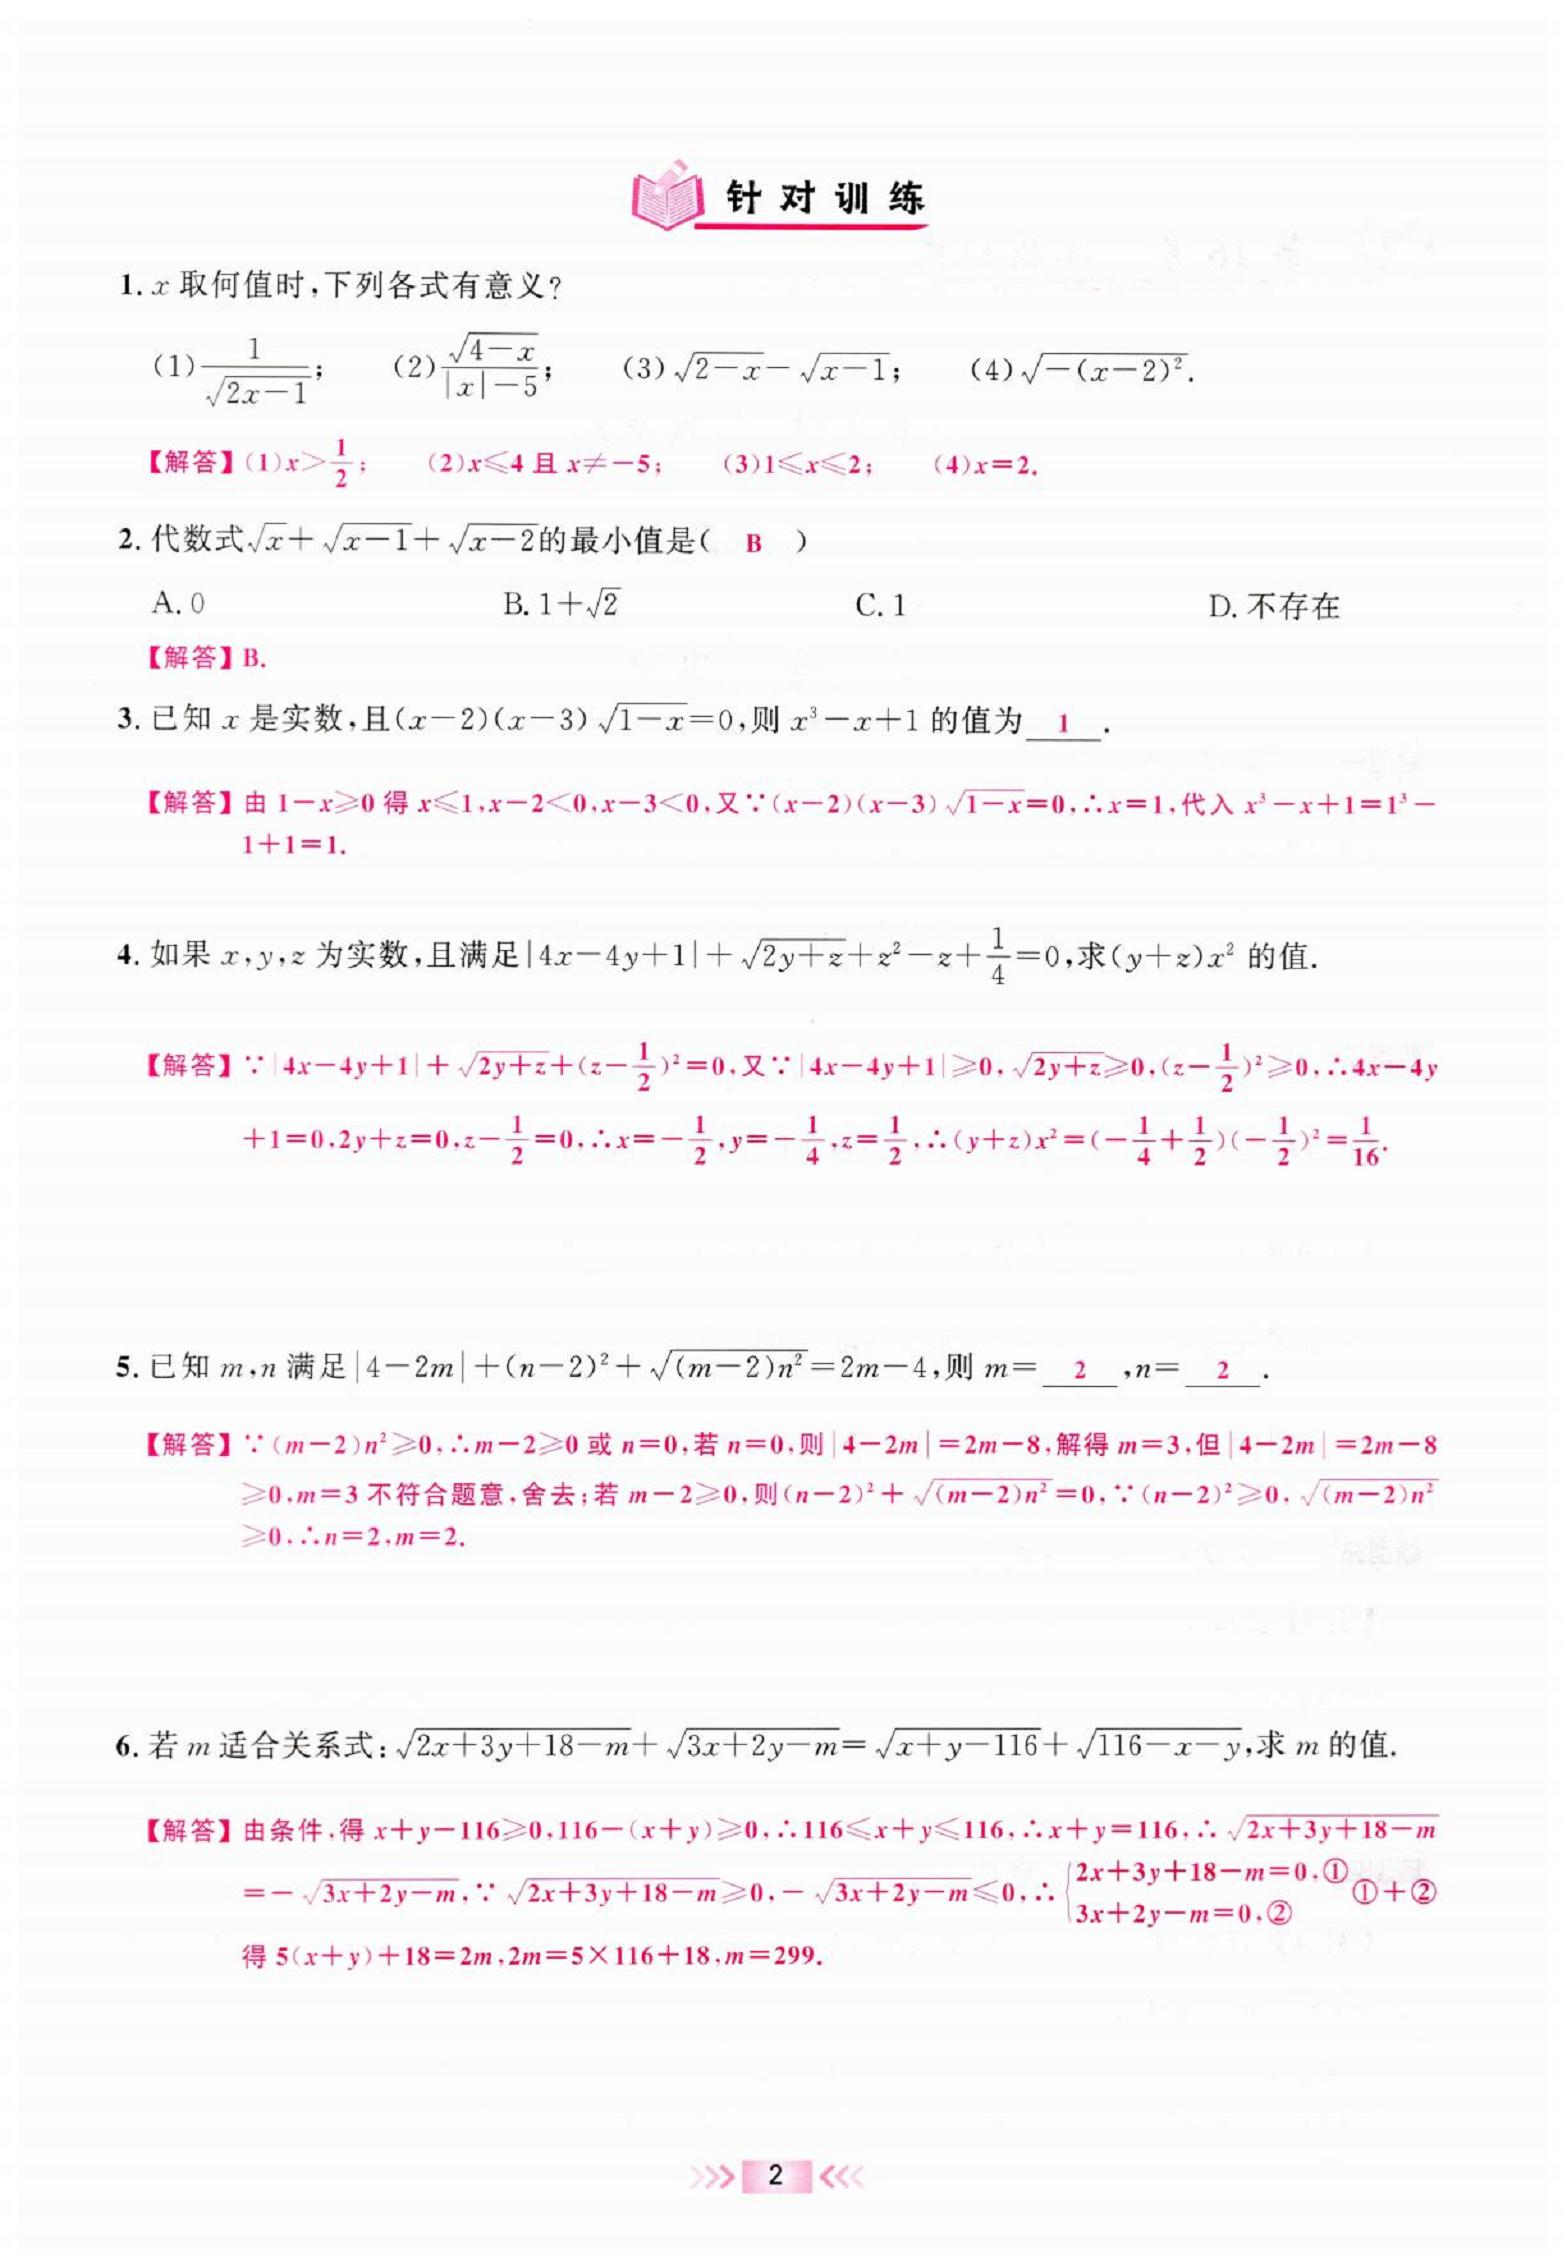 针对训练
1. x 取何值时,下列各式有意义?
(1) 1/√(2x-1); (2) √(4-x)/(|x|-5); (3) √(2-x)-√(x-1); (4) √(-(x-2)²).
【解答】(1)x>1/2; (2)x≤4 且 x≠-5; (3)1≤x≤2; (4)x=2.
2. 代数式√x+√(x-1)+√(x-2)的最小值是( B )
A. 0 B. 1+√2 C. 1 D. 不存在
【解答】B.
3. 已知 x 是实数,且(x-2)(x-3)√(1-x)=0,则 x³-x+1 的值为 1 .
【解答】由 1-x≥0 得 x≤1,x-2<0,x-3<0,又∵(x-2)(x-3)√(1-x)=0,∴x=1,代入 x³-x+1=1³-
1+1=1.
4. 如果 x,y,z 为实数,且满足|4x-4y+1|+√(2y+z)+z²-z+1/4=0,求(y+z)x² 的值.
【解答】∵|4x-4y+1|+√(2y+z)+(z-1/2)²=0,又∵|4x-4y+1|≥0,√(2y+z)≥0,(z-1/2)²≥0,∴4x-4y
+1=0,2y+z=0,z-1/2=0,∴x=-1/2,y=-1/4,z=1/2,∴(y+z)x²=(-1/4+1/2)(-1/2)²=1/16.
5. 已知 m,n 满足|4-2m|+(n-2)²+√((m-2)n²)=2m-4,则 m= 2 ,n= 2 .
【解答】∵(m-2)n²≥0,∴m-2≥0 或 n=0,若 n=0,则|4-2m|=2m-8,解得 m=3,但|4-2m|=2m-8
≥0,m=3 不符合题意,舍去;若 m-2≥0,则(n-2)²+√((m-2)n²)=0,∵(n-2)²≥0,√((m-2)n²)
≥0,∴n=2,m=2.
6. 若 m 适合关系式:√(2x+3y+18-m)+√(3x+2y-m)=√(x+y-116)+√(116-x-y),求 m 的值.
【解答】由条件,得 x+y-116≥0,116-(x+y)≥0,∴116≤x+y≤116,∴x+y=116,∴√(2x+3y+18-m)
=-√(3x+2y-m),∵√(2x+3y+18-m)≥0,-√(3x+2y-m)≤0,∴{2x+3y+18-m=0,① 3x+2y-m=0,② ①+②
得 5(x+y)+18=2m,2m=5×116+18,m=299.
2